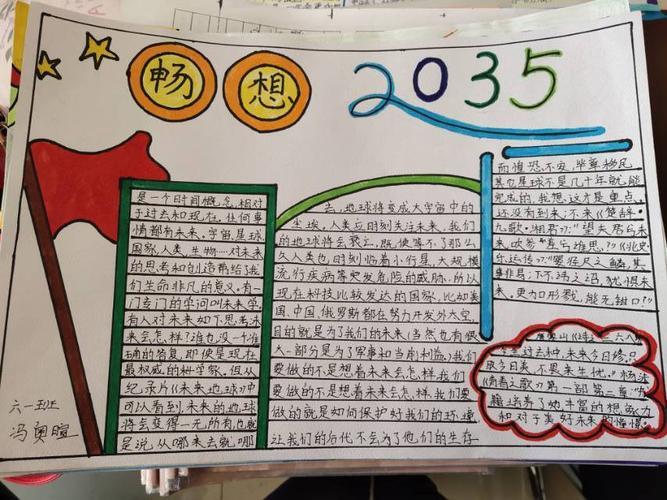 畅想2035
是一个时间概念,相对
于过去和现在。任何事
情都有未来。宇宙、星球
国家、人类、生物……对未来
的思考和创造带给了我
们生命非凡的意义。有一
门专门的学问叫未来学
有人对未来如下思考:未
来会怎样?谁也没一个准
确的答复,即使是现在
最权威的科学家,但从
纪录片《未来的地球》中
可以看到,未来的地球
将会变得一无所有,也就
是说从哪来去就哪
去,地球将变成大宇宙中的
尘埃,人类应时刻关注未来,我们
的地球将会衰亡,既使等不了那么
久人类也时刻临着小行星,大规模
流行疾病等突发危险的威胁,所以
现在科技比较发达的国家,比如美
国、中国、俄罗斯都在努力开发外太空,
目的就是为了我们的未来(当然也有很
大一部分是为了军事和当前利益)我们
要做的不是想着未来会怎样,我们
要做的不是想着未来会怎样我们要
做的就是如何保护好我们的环境
让我们的后代不会为了他们的生存
而惶恐、不安,毕竟移民
其他星球不是几十年就能
完成的,我想,这才是重点。
还没有到来;不来《楚辞·
九歌·湘君》:"望夫君兮未
来,吹参差兮谁思?"《北史·
乐运传》:
来,更加刑戮,能无钳口?"
今生过去种,未来今日修,只
》第一部第二章:"
籍培养了她丰富的想象力
和对于美好未来的憧憬。"
六一班
冯奥暄